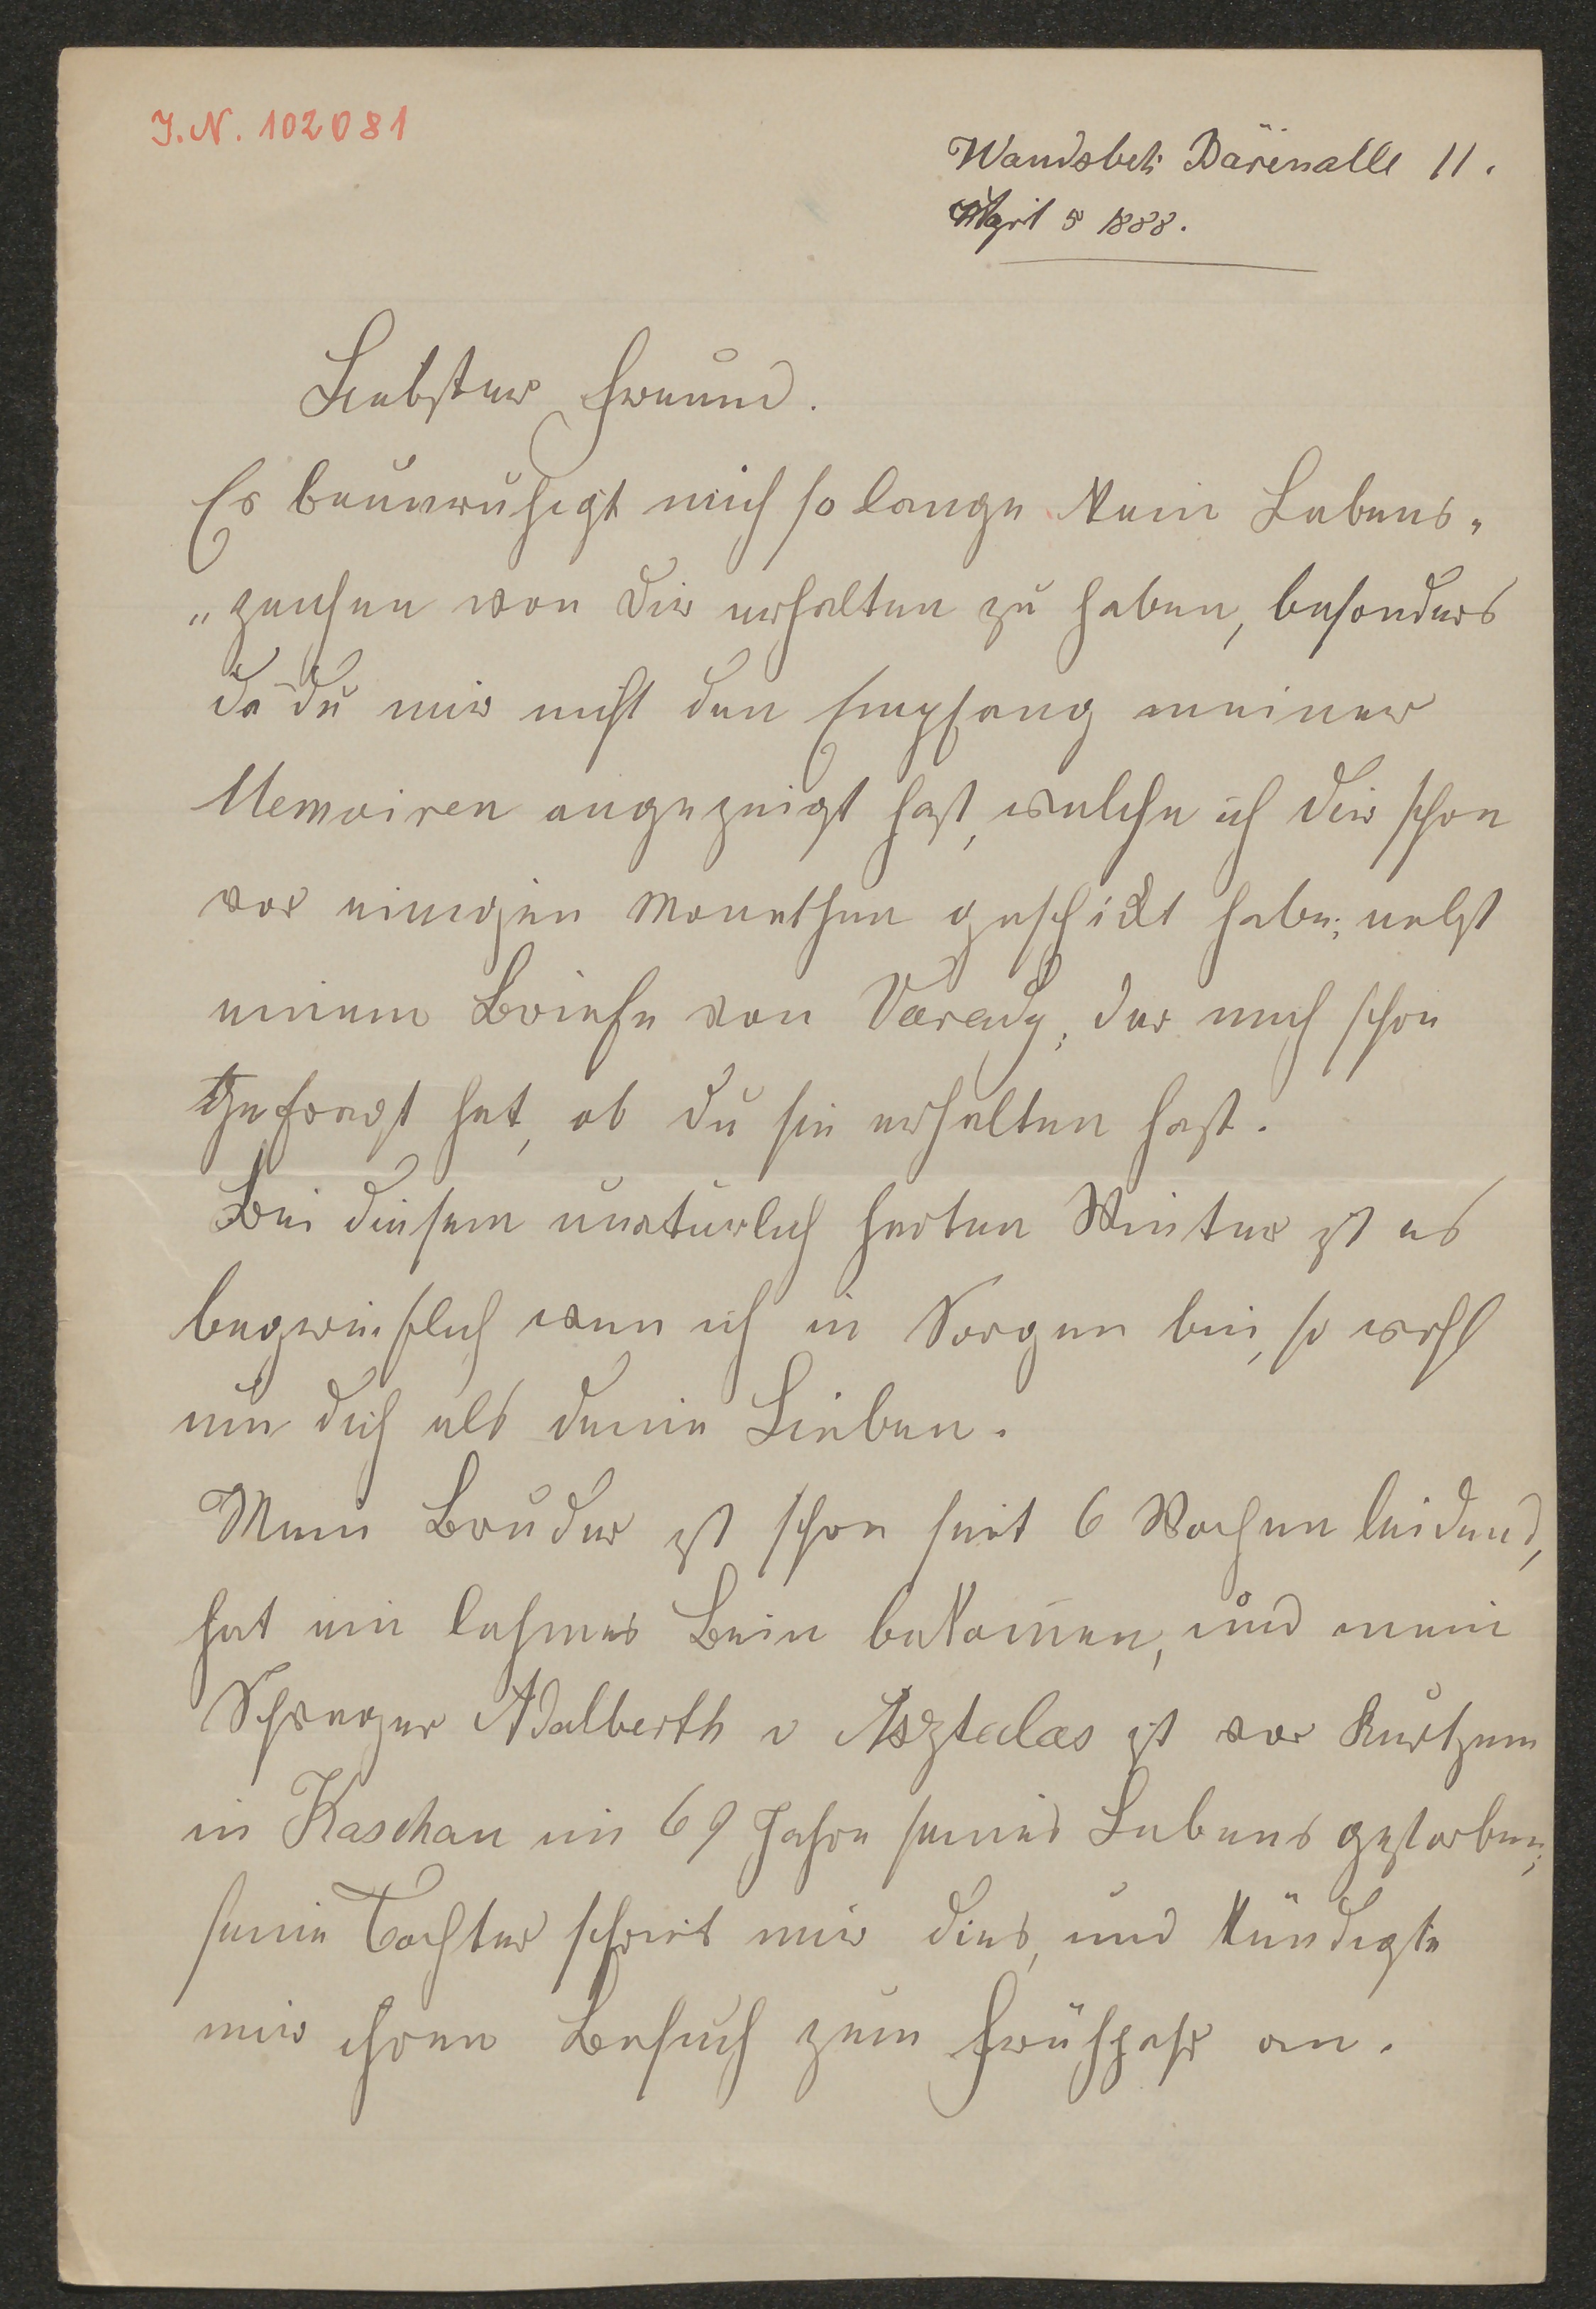 J. N. 102081
Wandsbek Bärenalle 11.
April 5 1888.
Liebster Freund.
Es beunruhigt mich so lange kein Lebens„
„zeichen von dir erhalten zu haben, besonders
da du mir nicht den Empfang meiner
Memoiren angezeigt hast, welche ich dir schon
vor einigen Monathen geschikt habe; nebst
einem Briefe von Varady, der mich schon
gefragt hat, ob du sie erhalten hast.
Bei diesem unatürlich harten Winter ist es
begreiflich wenn ich in Sorgen bin, so wohl
um dich als deine Lieben.
Mein Bruder ist schon seit 6 Wochen leidend,
hat ein lahmes Bein bekom̄en, und mein
Schwager Adalberth v Asztalas ist vor Kurtzem
in Kaschau im 69 Jahre seines Lebens gestorben;
seine Tochter schreit mir dies, und kündigte
mir ihren Besuch zum Frühjahr an.